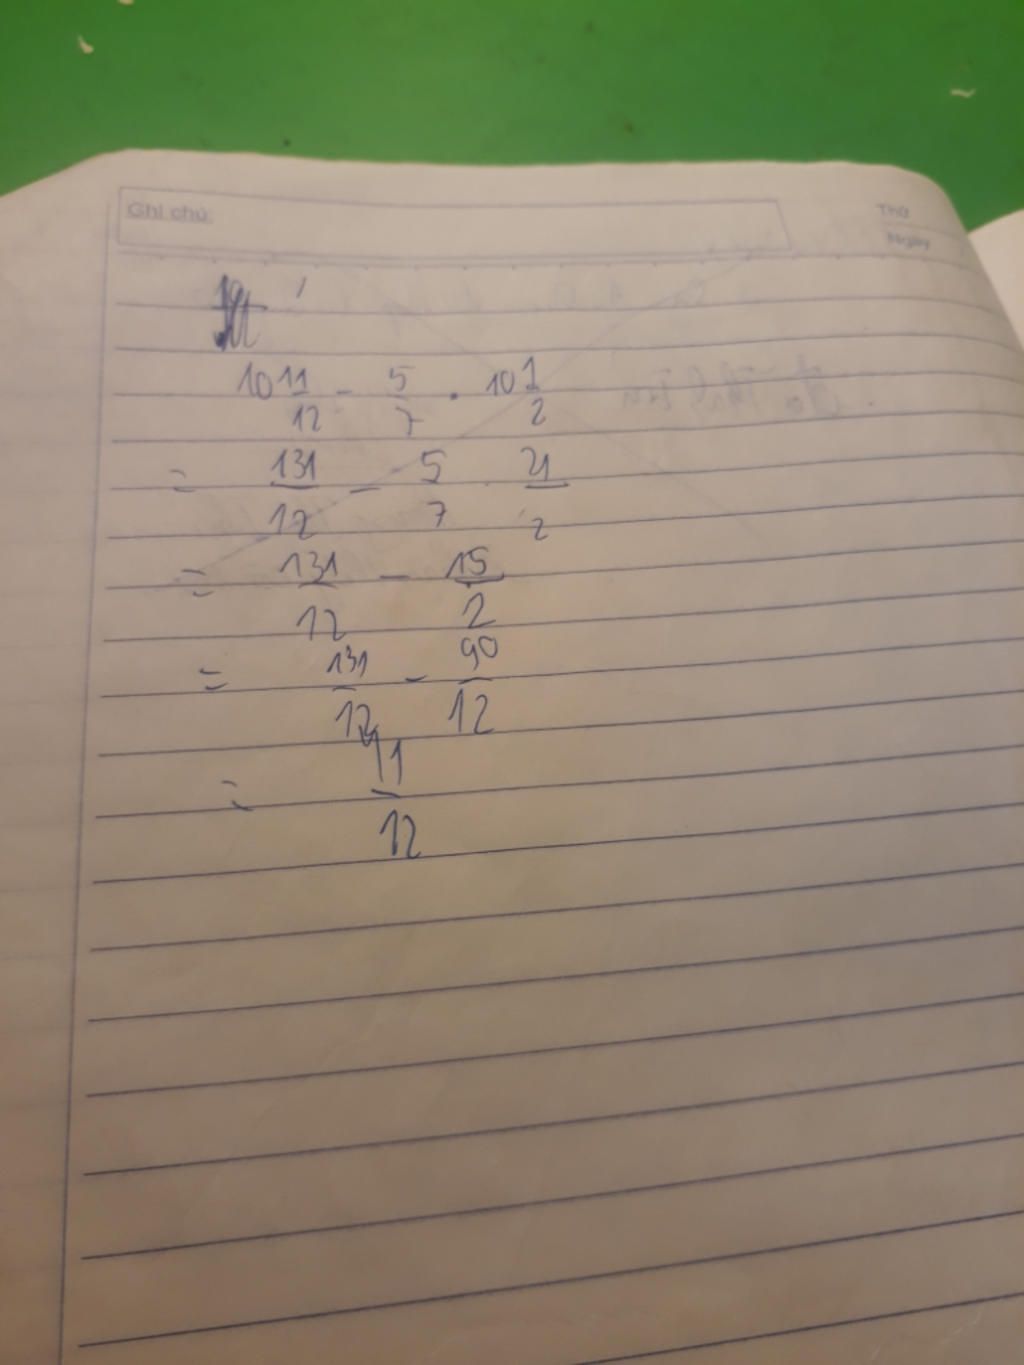 Ghi chú:
Thứ
Ngày
10 11/12 - 5/7 . 10 1/2
= 131/12 - 5/7 . 21/2
= 131/12 - 15/2
= 131/12 - 90/12
= 41/12